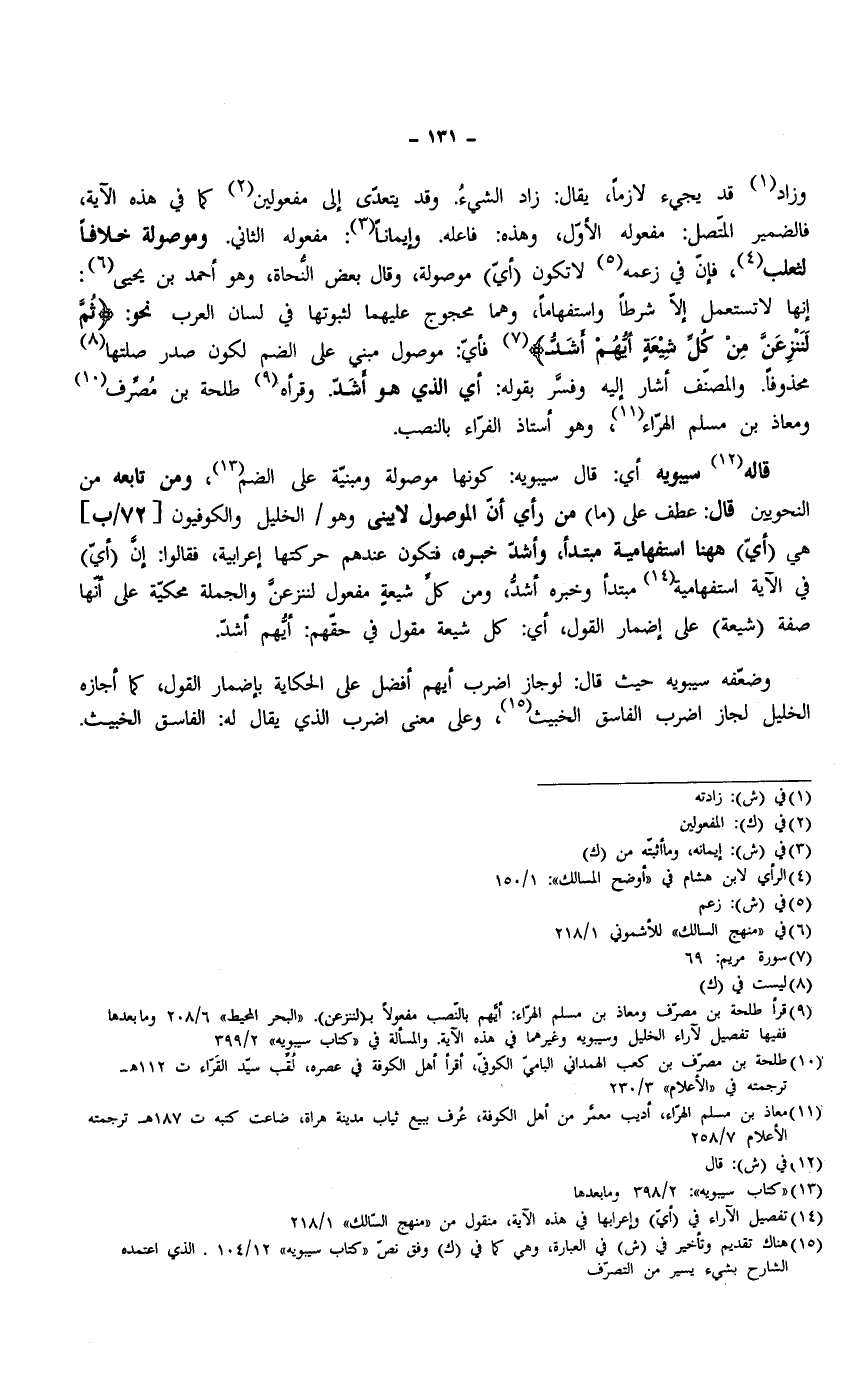 - ١٣١ -
وزاد(١) قد يجيء لازماً، يقال: زاد الشيءُ. وقد يتعدّى إلى مفعولين(٢) كما في هذه الآية،
فالضمير المتّصل: مفعوله الأوّل، وهذه: فاعله. وإيماناً(٣): مفعوله الثاني. وموصولة خلافاً
لثعلب(٤)، فإنّ في زعمه(٥) لاتكون (أيّ) موصولة، وقال بعض النُّحاة، وهو أحمد بن يحيى(٦):
إنها لاتستعمل إلاّ شرطاً واستفهاماً، وهما محجوج عليهما لثبوتها في لسان العرب نحو: ﴿ثُمَّ
لَنَنْزِعَنَّ مِنْ كُلِّ شيْعَةٍ أَيُّهُمْ أَشَدُّ﴾(٧) فأيّ: موصول مبني على الضم لكون صدر صلتها(٨)
محذوفاً. والمصنّف أشار إليه وفسَّر بقوله: أي الذي هو أَشَدّ. وقرأه(٩) طلحة بن مُصرِّف(١٠)
ومعاذ بن مسلم الهرّاء(١١)، وهو أستاذ الفرّاء بالنصب.
قاله(١٢) سيبويه أي: قال سيبويه: كونها موصولة ومبنيّة على الضم(١٣)، ومن تابعه من
النحويين قال: عطف على (ما) من رأي أنّ الموصول لايبنى وهو / الخليل والكوفيون [٧٢/ب]
هي (أيّ) ههنا استفهامية مبتدأ، وأشدّ خبره، فتكون عندهم حركتها إعرابية، فقالوا: إنَّ (أيّ)
في الآية استفهامية(١٤) مبتدأ وخبره أشدُّ، ومن كلِّ شيعةٍ مفعول لننزعنَّ والجملة محكيّة على أنّها
صفة (شيعة) على إضمار القول، أي: كل شيعة مقول في حقّهم: أيُّهم أشدّ.
وضعّفه سيبويه حيث قال: لوجاز اضرب أيهم أفضل على الحكاية بإضمار القول، كما أجازه
الخليل لجاز اضرب الفاسق الخبيث(١٥)، وعلى معنى اضرب الذي يقال له: الفاسق الخبيث.
(١) في (ش): زادته
(٢) في (ك): المفعولين
(٣) في (ش): إيمانه، وماأثبتّه من (ك)
(٤) الرأي لابن هشام في «أوضح المسالك»: ١٥٠/١
(٥) في (ش): زعم
(٦) في «منهج السالك» للأشموني ٢١٨/١
(٧) سورة مريم: ٦٩
(٨) ليست في (ك)
(٩) قرأ طلحة بن مصرّف ومعاذ بن مسلم الهرّاء: أيَّهم بالنّصب مفعولاً بـ(لننزعن). «البحر المحيط» ٢٠٨/٦ ومابعدها
ففيها تفصيل لآراء الخليل وسيبويه وغيرهما في هذه الآية. والمسألة في «كتاب سيبويه» ٣٩٩/٢
(١٠) طلحة بن مصرّف بن كعب الهمداني الياميّ الكوفيّ، أقرأ أهل الكوفة في عصره، لُقِّب سيّد القَرّاء ت ١١٢هـ
ترجمته في «الأعلام» ٢٣٠/٣
(١١) معاذ بن مسلم الهرّاء، أديب معمَّر من أهل الكوفة، عُرف ببيع ثياب مدينة هراة، ضاعت كتبه ت ١٨٧هـ ترجمته
الأعلام ٢٥٨/٧
(١٢) في (ش): قال
(١٣) «كتاب سيبويه»: ٣٩٨/٢ ومابعدها
(١٤) تفصيل الآراء في (أيّ) وإعرابها في هذه الآية، منقول من «منهج السّالك» ٢١٨/١
(١٥) هناك تقديم وتأخير في (ش) في العبارة، وهي كما في (ك) وفق نصّ «كتاب سيبويه» ١٠٤/١٢ . الذي اعتمده
الشارح بشيء يسير من التصرّف